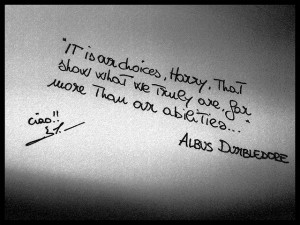 "IT is our choices, Harry, That
show what we Truly are, far
more Than our abilities..."
ALBUS DUMBLEDORE
ciao!!